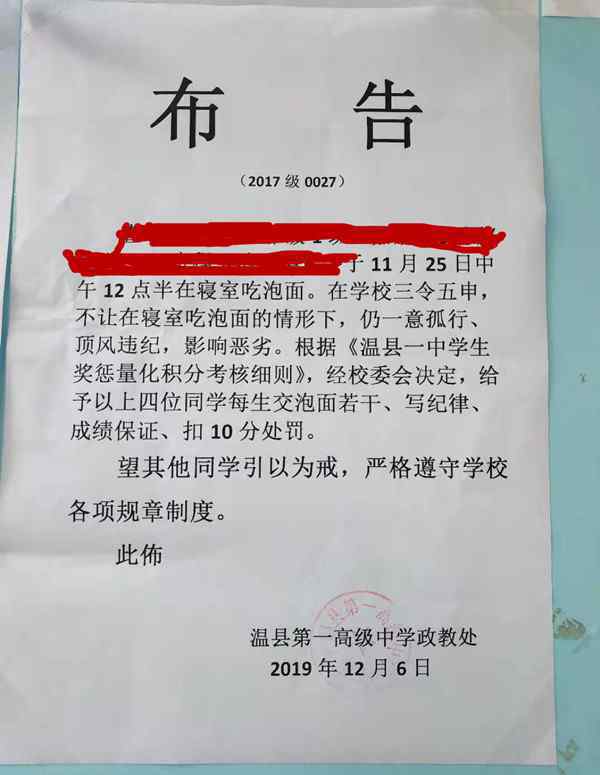 布 告
（2017 级 0027）
于 11 月 25 日中
午 12 点半在寝室吃泡面。在学校三令五申，
不让在寝室吃泡面的情形下，仍一意孤行、
顶风违纪，影响恶劣。根据《温县一中学生
奖惩量化积分考核细则》，经校委会决定，给
予以上四位同学每生交泡面若干、写纪律、
成绩保证、扣 10 分处罚。
望其他同学引以为戒，严格遵守学校
各项规章制度。
此佈
温县第一高级中学政教处
2019 年 12 月 6 日